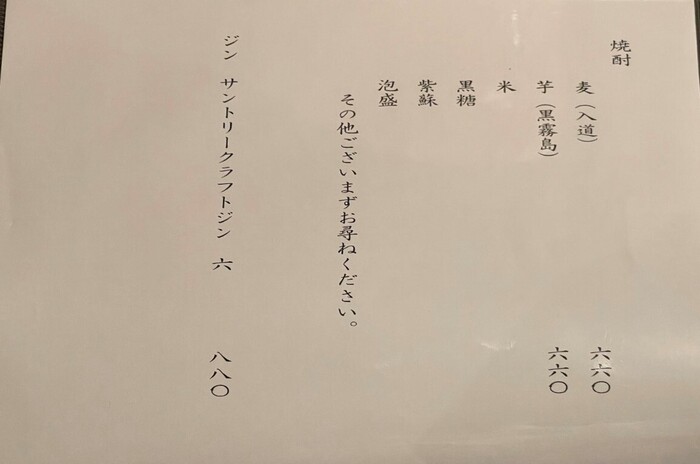 焼酎
麦（入道） 六六〇
芋（黒霧島） 六六〇
米
黒糖
紫蘇
泡盛
その他ございまずお尋ねください。
ジン サントリークラフトジン 六 八八〇